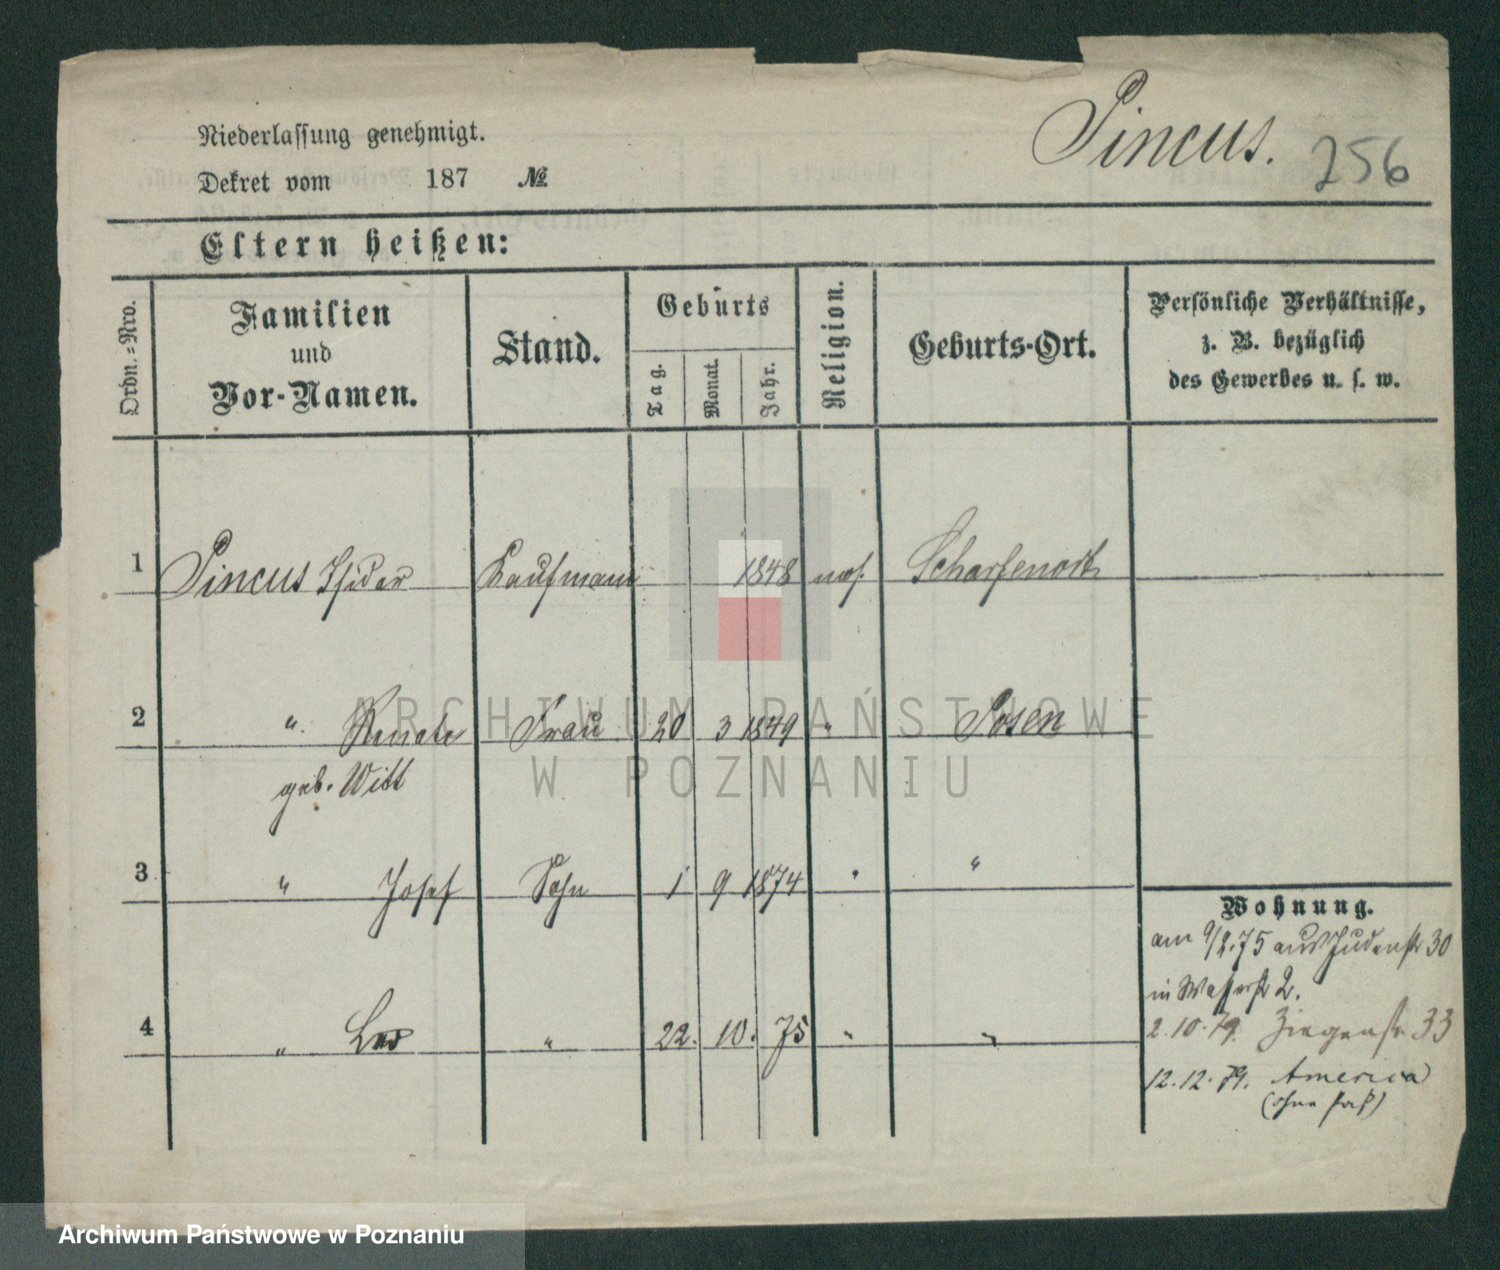 Pincus. 256
Niederlassung genehmigt.
Dekret vom 187 №
Eltern heißen:
Ordn.=Nro.
Familien
und
Vor-Namen.
Stand.
Geburts
Tag.
Monat.
Jahr.
Religion.
Geburts-Ort.
Persönliche Verhältnisse,
z. B. bezüglich
des Gewerbes u. s. w.
1 Pincus Isidor Kaufmann 1848 mos. Scharfenort
2 " Renate Frau 20 3 1849 " Posen
geb. Witt
3 " Josef Sohn 1 9 1874 " "
4 " Leo " 22. 10. 75 " "
Wohnung.
am 9/2.75 aus Judenstr 30
in Wasserstr 2.
2.10.79. Ziegenstr 33
12.12.79. America
(ohne Paß)
ARCHIWUM PAŃSTWOWE
W POZNANIU
Archiwum Państwowe w Poznaniu